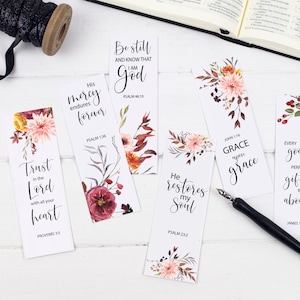 Trust
in the
Lord
with all your
heart
PROVERBS 3:5
His
mercy
endures
forever
PSALM 136
Be still
AND KNOW THAT
I AM
God
PSALM 46:10
He
restores
my
Soul
PSALM 23:3
JOHN 1:16
GRACE
upon
grace
Every
good
per
gif
is
abo
JAMES